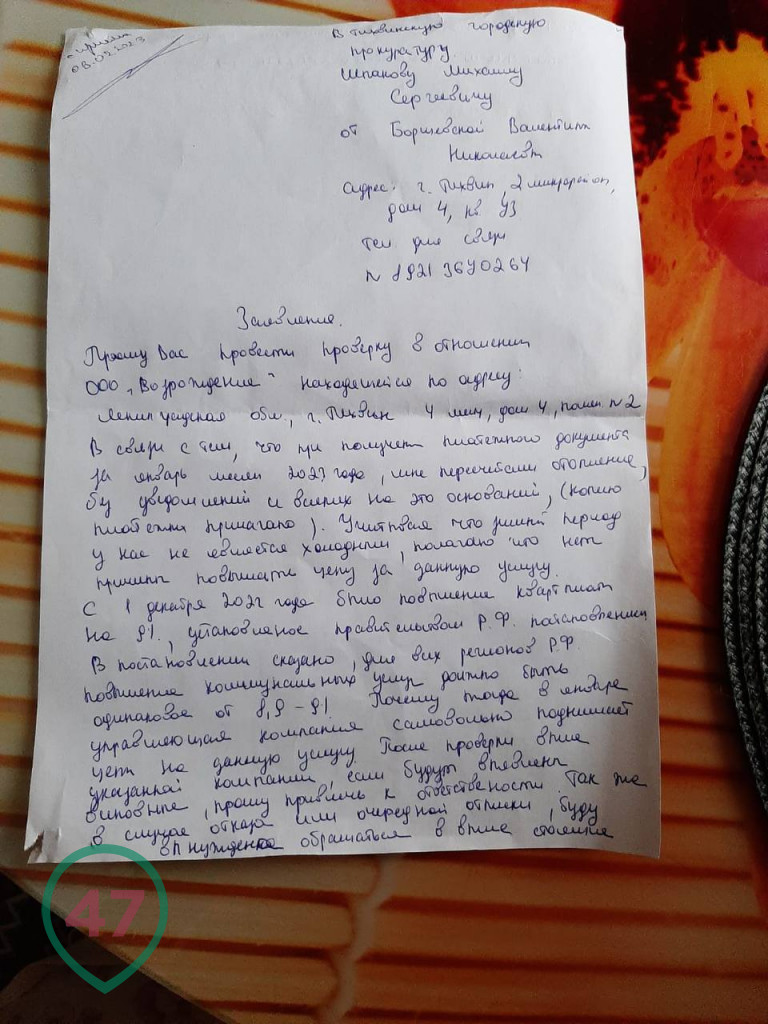 08.02.2023
В тихвинскую городскую
прокуратуру
Шпакову Михаилу
Сергеевичу
от Борщевской Валентины
Адрес: г. Тихвин, 2 микрорайон,
дом 4, кв 93
тел для связи
N 8921 3690264
Заявление.
Прошу Вас провести проверку в отношении
ООО „Возрождение" находящейся по адресу:
Ленинградская обл., г. Тихвин 4 мкн, дом 4, помещ. N 2
В связи с тем, что при получен платежного документа
за январь месяц 2023 года, мне пересчитали отопление,
без уведомлений и всяких на это оснований, (копию
платежки прилагаю). Учитывая что зимний период
у нас не является холодным, полагаю что нет
причины повышать цену за данную услугу.
С 1 декабря 2022 года было повышение квартплаты
на 9%, установленое правительством Р.Ф. постановлением
В постановлении сказано, для всех регионов Р.Ф.
повышение коммунальных услуг должно быть
одинаковое от 8,9 - 9%. Почему тогда в январе
управляющая компания самовольно поднимает
цены на данную услугу. После проверки выше
указанной компании, если будут выявлены
виновные, прошу привлечь к ответственности. Так же
в случае отказа или очередной отписки, буду
вынуждена обращаться в выше стоящие
47